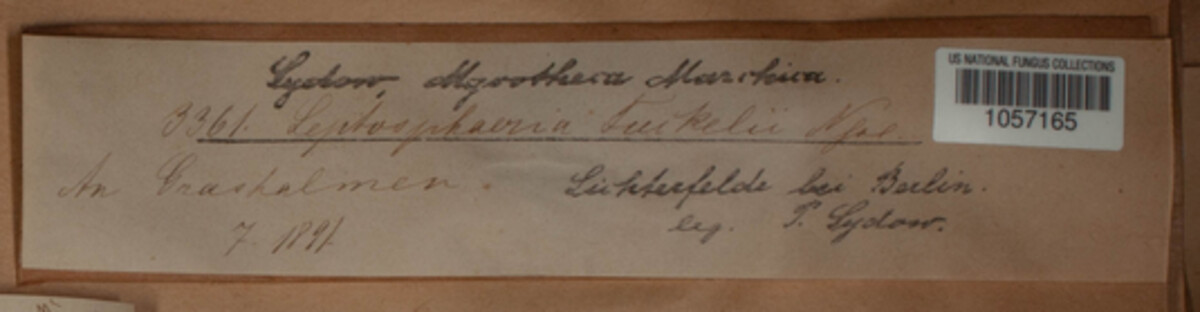 Sydow, Mycotheca Marchica.
3361. Leptosphaeria Fuckelii Nssl.
An Grashalmen.
Lichterfelde bei Berlin.
7. 1891
leg. P. Sydow.
US NATIONAL FUNGUS COLLECTIONS
1057165